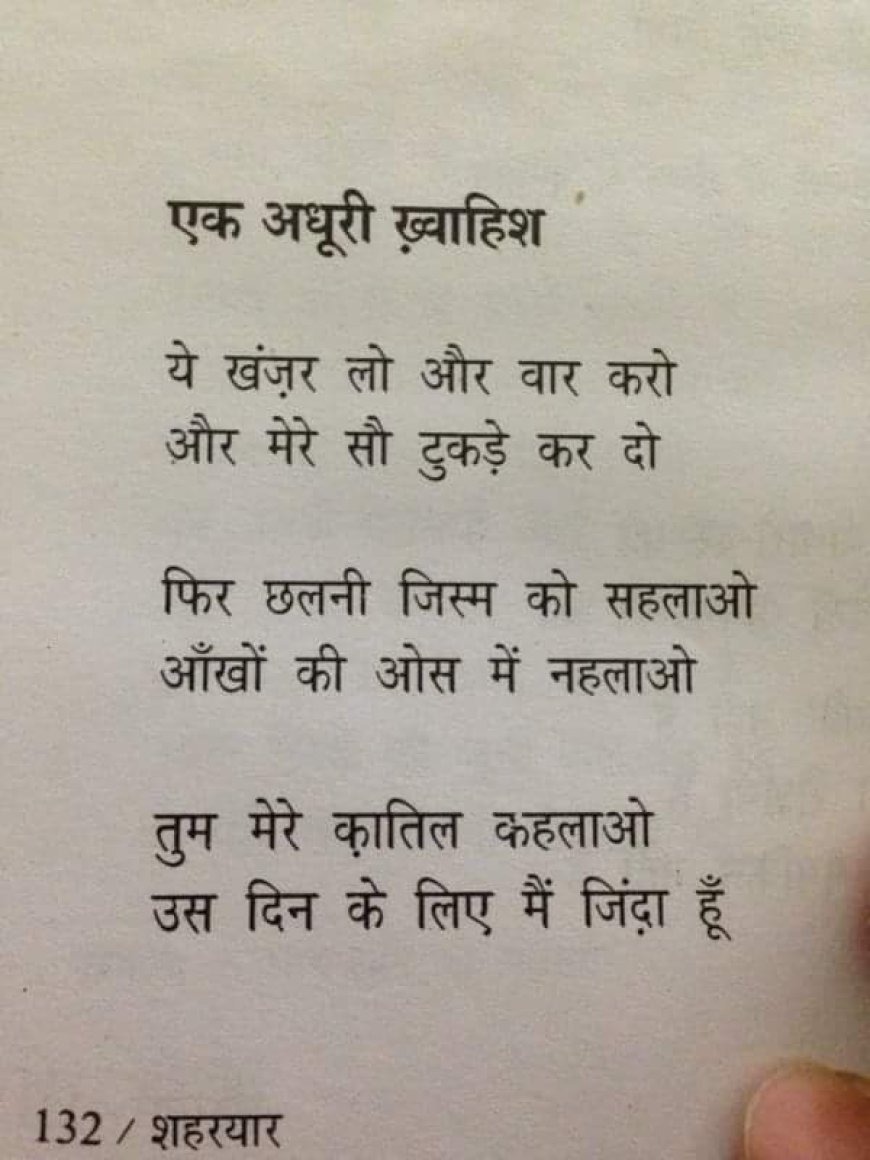 एक अधूरी ख़्वाहिश
ये खंज़र लो और वार करो
और मेरे सौ टुकड़े कर दो
फिर छलनी जिस्म को सहलाओ
आँखों की ओस में नहलाओ
तुम मेरे क़ातिल कहलाओ
उस दिन के लिए मैं जिंद़ा हूँ
132 / शहरयार